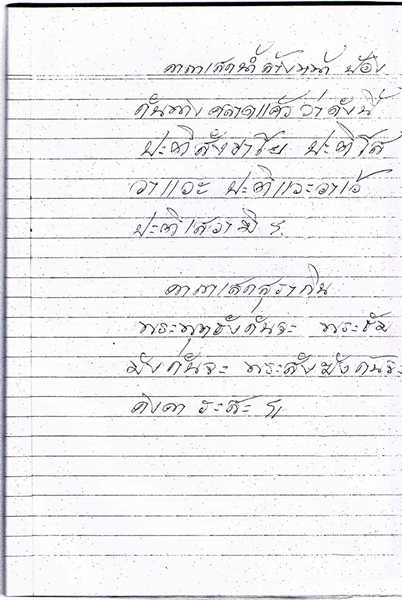 คาถาเสกน้ำล้างหน้า ป้อง
กันทางคลาดแคล้ว ว่าดังนี้
ปะติสังขาโย ปะติโส
วาแวะ ปะติแวะวาเว้
ปะติเสวามิ ฯ
คาถาเสกสุรากิน
พระพุทธังกันจะ พระธัม
มังกันจะ พระสังฆังกันจะ
คงคา ระสะ ฯ